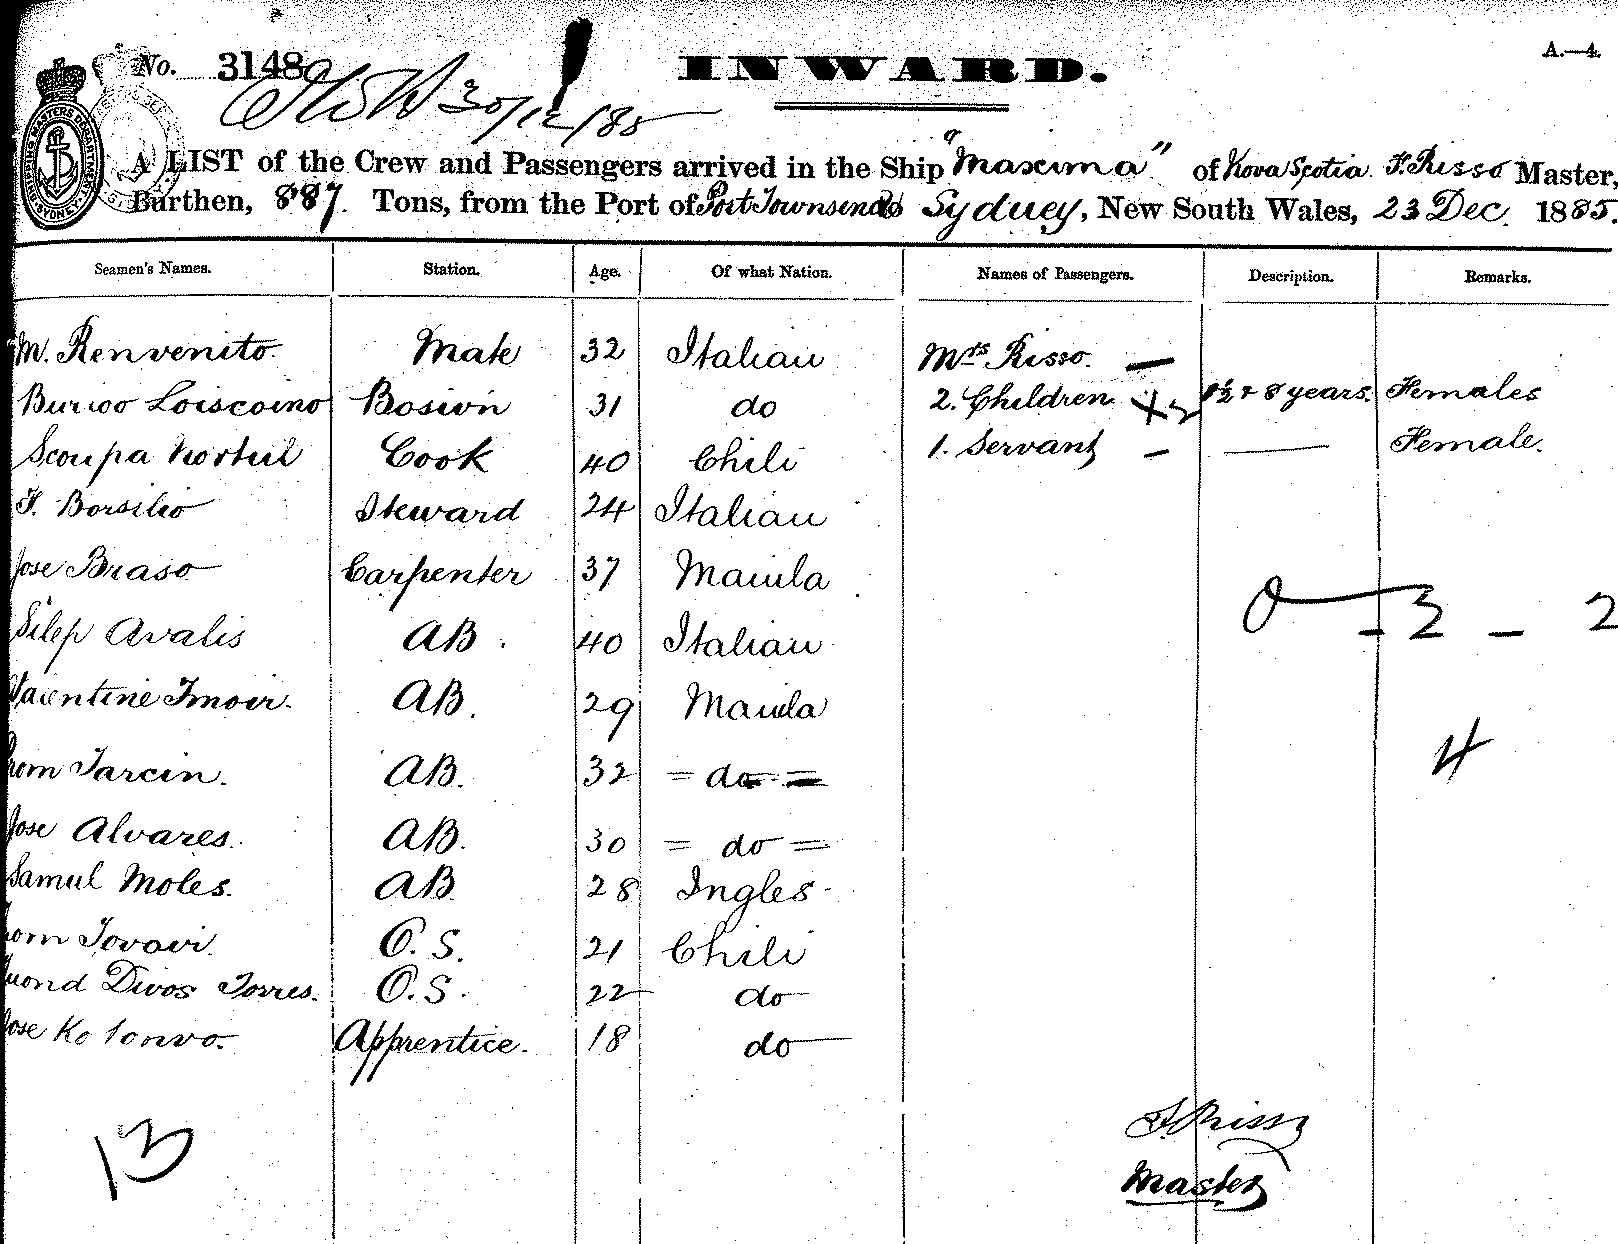 No. 3148
INWARD.
A.—4.
30/12/85
A LIST of the Crew and Passengers arrived in the Ship "Maxima" of Nova Scotia F. Risso Master,
Burthen, 887. Tons, from the Port of Port Townsend to Sydney, New South Wales, 23 Dec. 1885.
Seamen's Names. Station. Age. Of what Nation. Names of Passengers. Description. Remarks.
M. Renvenito. Mate 32 Italian Mrs Risso. —
Loiscoino Bosion 31 do 2. Children 1½ & 8 years. Females
Cook 40 Chili 1. Servant — Female.
F. Borsilio Steward 24 Italian
Jose Braso Carpenter 37 Manila
Silep Avalis AB. 40 Italian
Valentine AB. 29 Manila
Tarcin. AB. 32 = do =
Jose Alvares. AB. 30 = do =
Samul Moles. AB 28 Ingles
O.S. 21 Chili
Divos Torres. O.S. 22 do
Jose Apprentice. 18 do
- 2 - 2
4
13
F Risso
Master